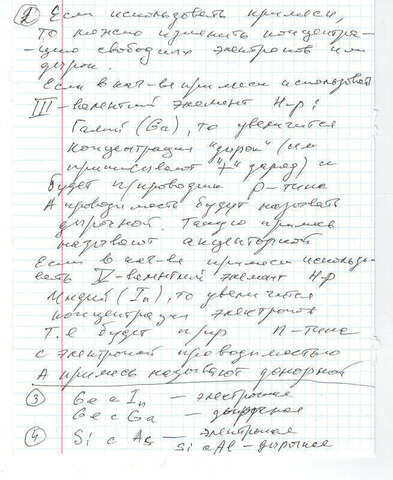 ② Если использовать примеси,
то можно изменить концентра-
-цию свободных электронов или
дырок.
Если в кач-ве примеси использовать
III-валентный элемент н-р:
Галий (Ga), то увеличится
концентрация "дырок" (им
приписывают "+" заряд) и
будет п/проводник p-типа
А проводимость будут называть
дырочной. Такую примесь
называют акцепторной
Если в кач-ве примеси использо-
вать V-валентный элемент н-р
Индий (In), то увеличится
концентрация электронов
Т.е будет п/пр n-типа
с электронной проводимостью
А примесь называют донорной
③ Ge с In — электронная
Ge с Ga — дырочная
④ Si с As — электронная
Si с Al - дырочная